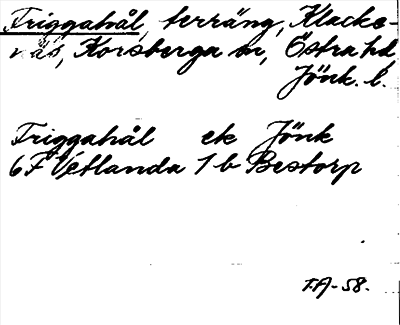 Friggahål, terräng, Klacke-
näs, Korsberga sn, Östra hd
Jönk. l.
Friggahål ek Jönk
6F Vetlanda 1 b Bestorp
T.A-58.